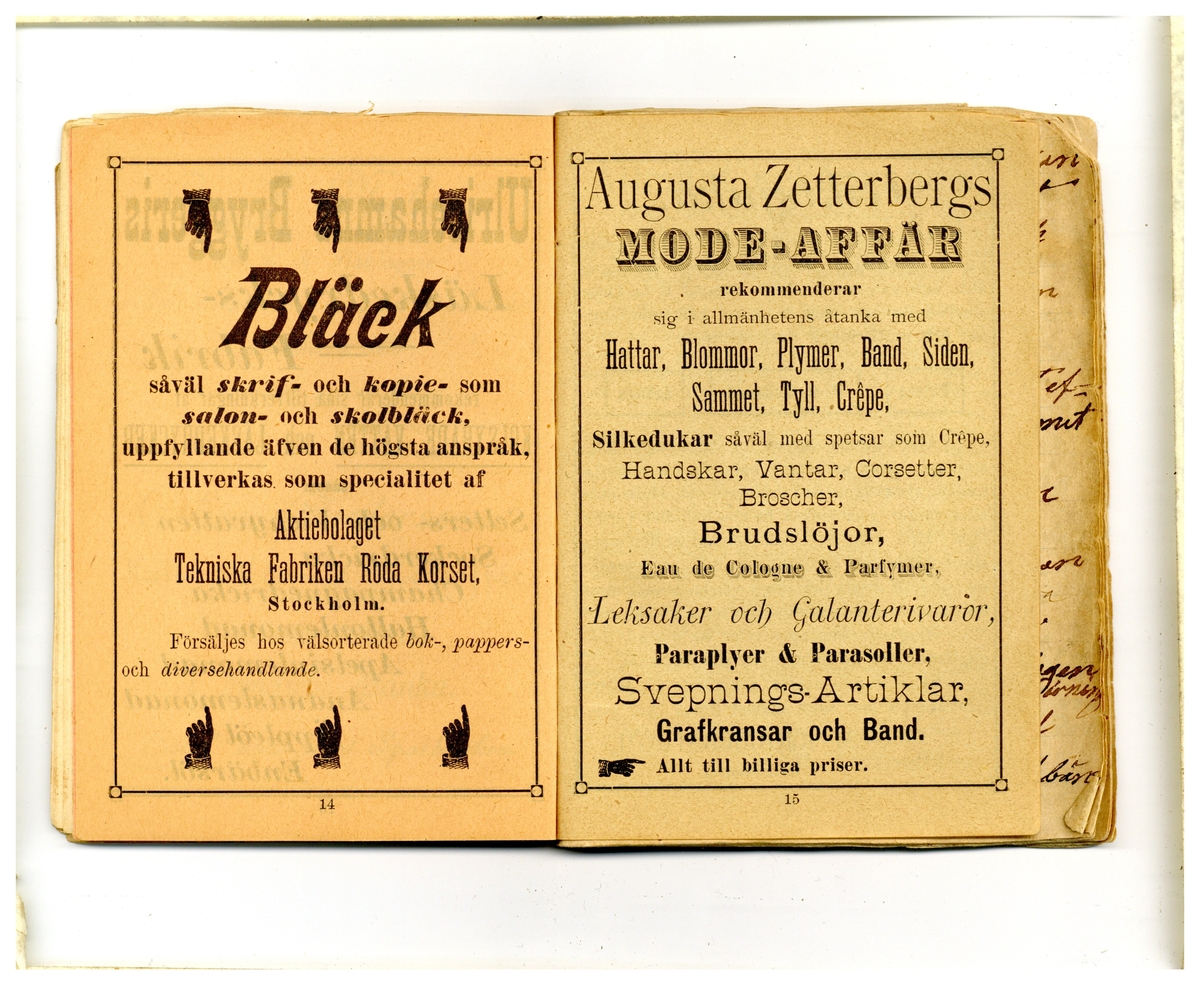 Bläck
såväl skrif- och kopie- som
salon- och skolbläck,
uppfyllande äfven de högsta anspråk,
tillverkas som specialitet af
Aktiebolaget
Tekniska Fabriken Röda Korset,
Stockholm.
Försäljes hos välsorterade bok-, pappers-
och diversehandlande.
14
Augusta Zetterbergs
MODE-AFFÄR
rekommenderar
sig i allmänhetens åtanka med
Hattar, Blommor, Plymer, Band, Siden,
Sammet, Tyll, Crêpe,
Silkedukar såväl med spetsar som Crêpe,
Handskar, Vantar, Corsetter,
Broscher,
Brudslöjor,
Eau de Cologne & Parfymer,
Leksaker och Galanterivaror,
Paraplyer & Parasoller,
Svepnings-Artiklar,
Grafkransar och Band.
Allt till billiga priser.
15